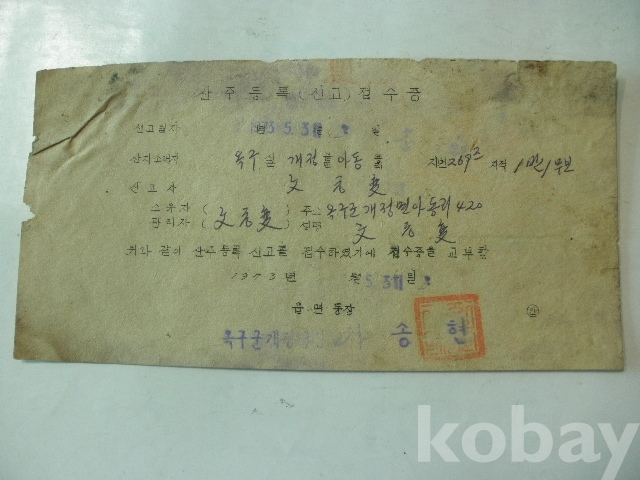 산주등록(신고)접수증
신고일자 1973.5.31 년 월 일
산지소재지 옥구 군 개정면 아동리 지번 269 지적 1반1무보
신고자 文元變
소유자 ( 文元變 ) 주소 옥구군개정면아동리420
관리자 성명 文元變
위와 같이 산주등록 신고를 접수하였기에 접수증을 교부함
1973년 월 5.31 일
읍면동장
옥구군개정 송 현
kobay